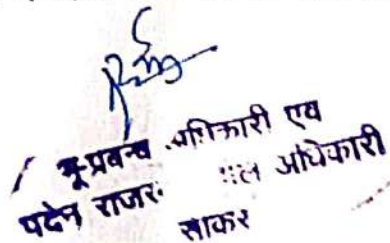 भू-प्रबन्ध अधिकारी एव
पदेन राजस्‍ अधिकारी
साकर